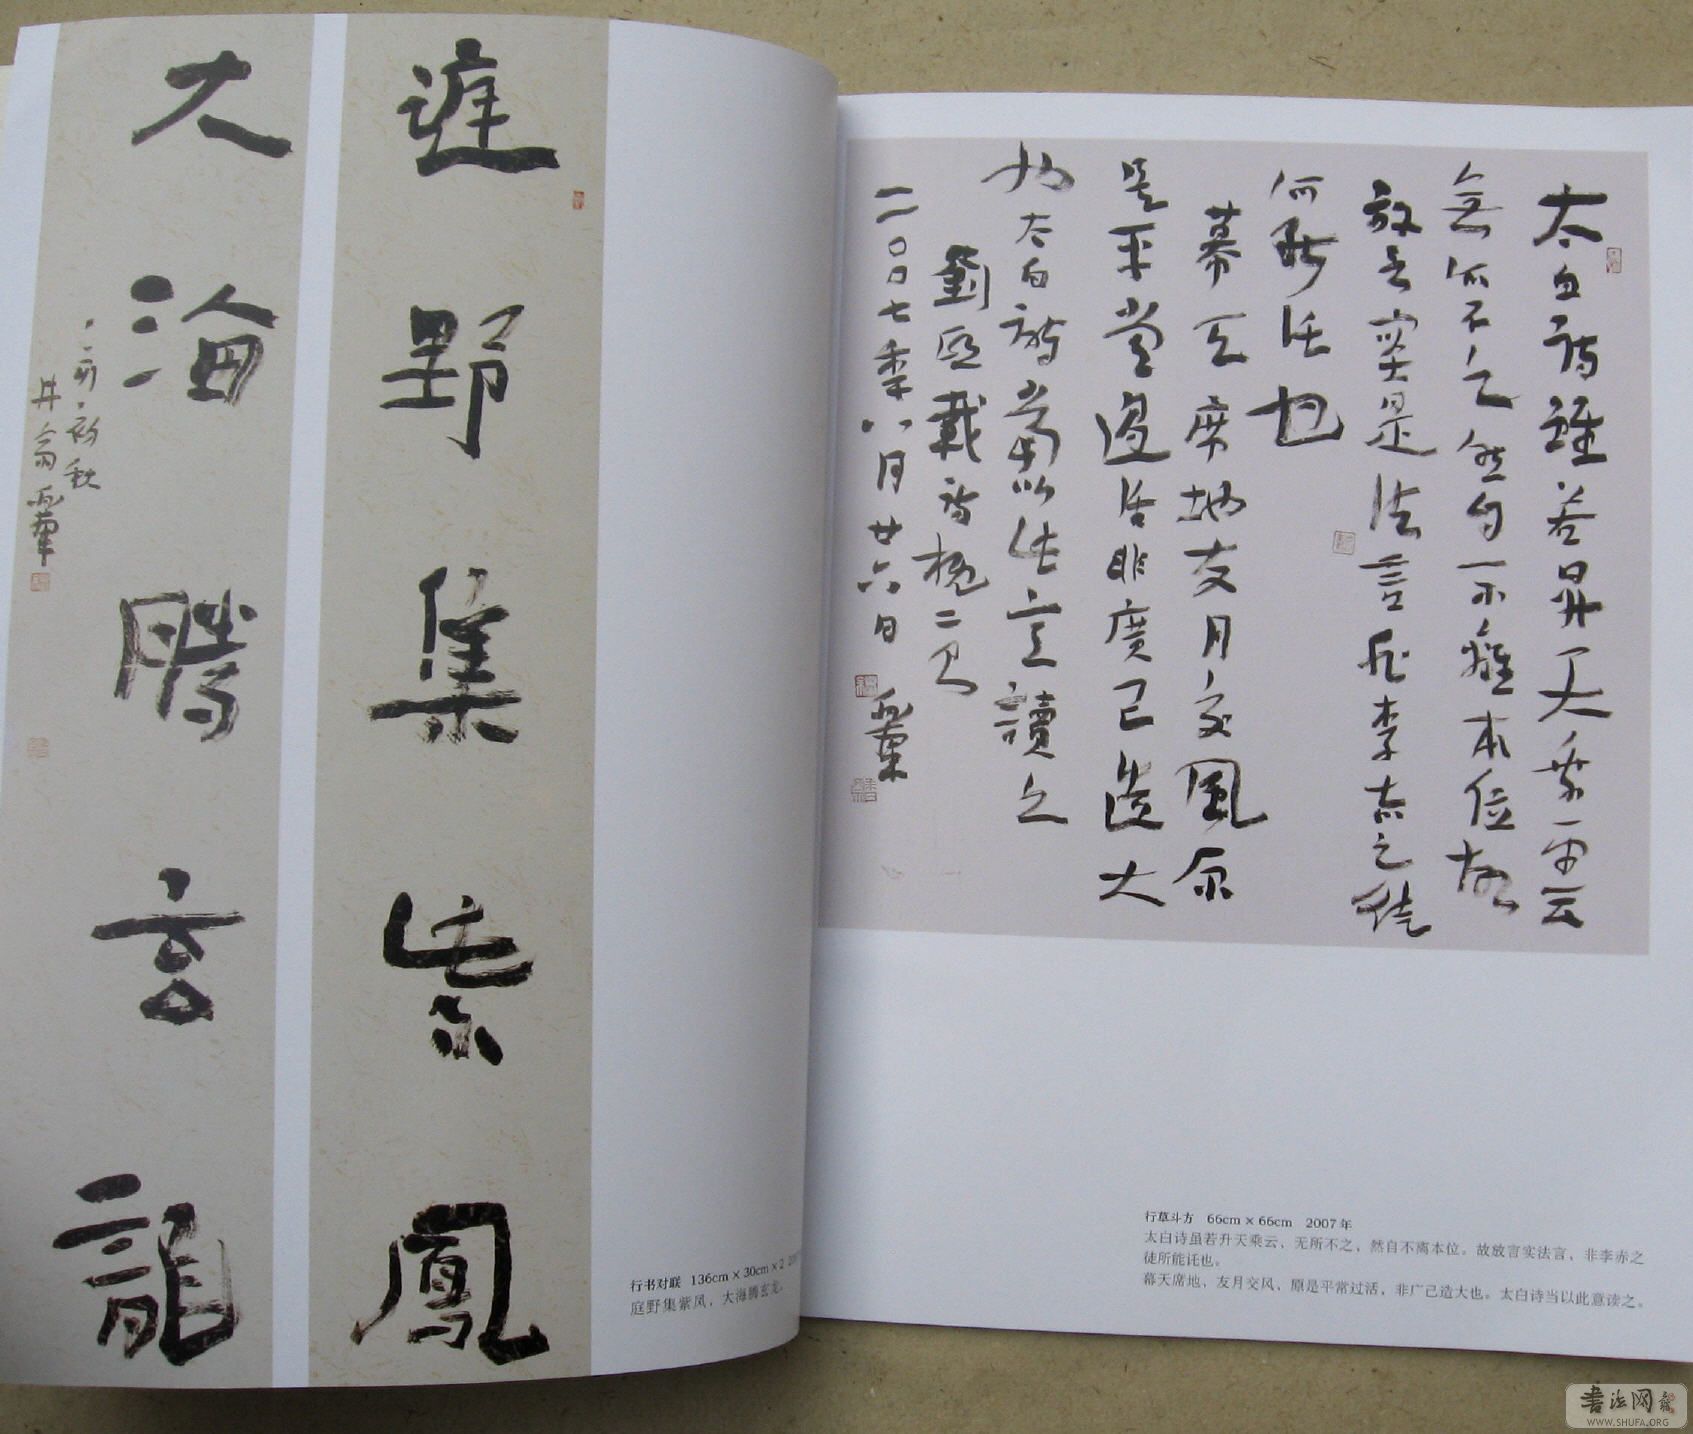 庭野集紫鳳
大海騰玄龍
丁亥初秋
行书对联 136cm × 30cm × 2
庭野集紫凤，大海腾玄龙。
太白詩雖若昇天乘云
無所不之然自不離本位故
放言實是法言非李赤之徒
所能託也
幕天席地友月交風原
是平常過活非廣己造大
也太白詩當以此意讀之
劉熙載詩概二則
二〇〇七年八月廿六日
行草斗方 66cm × 66cm 2007年
太白诗虽若升天乘云，无所不之，然自不离本位。故放言实法言，非李赤之
徒所能讬也。
幕天席地，友月交风，原是平常过活，非广己造大也。太白诗当以此意读之。
書法网
WWW.SHUFA.ORG